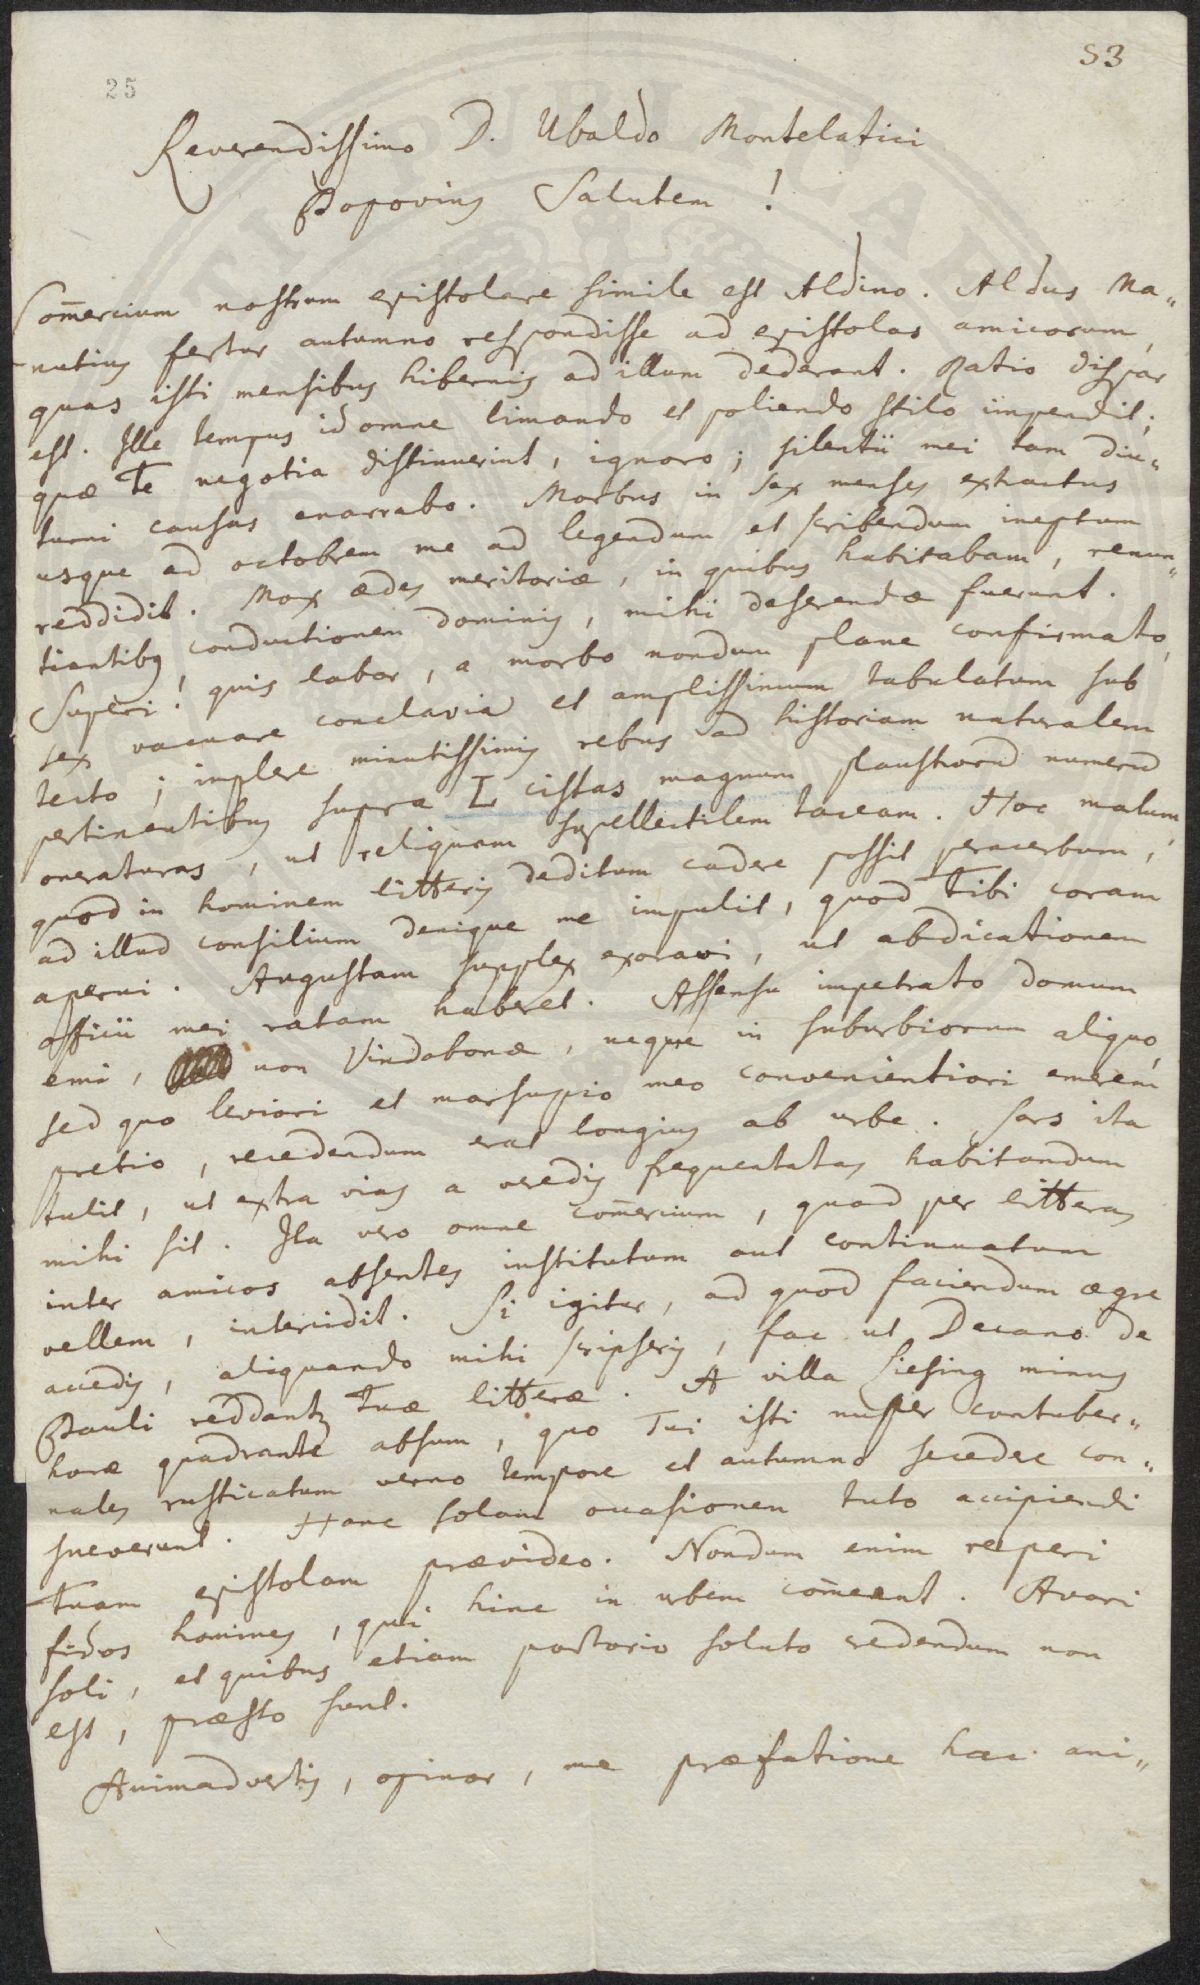 53
25
Reverendissimo D. Ubaldo Montelatici
Popovius Salutem !
Com̄ercium nostrum epistolare simile est Aldino. Aldus Ma„
nutius fertur autumno respondisse ad epistolas amicorum,
quas isti mensibus hibernis ad illum dederant. Ratio dispar
est. Ille tempus id omne limando et poliendo stilo impendit;
quæ Te negotia distinuerint, ignoro; silentii mei tam diu„
turni causas enarrabo. Morbus in sex menses extractus
usque ad octobrem me ad legendum et scribendum ineptum
reddidit. Mox ædes meritoriæ, in quibus habitabam, renun„
tiantibq conductionem dominis, mihi deserendæ fuerunt.
Superi! quis labor, a morbo nondum plane confirmato,
sex vacuare conclavia et amplissimum tabulatum sub
tecto; implere minutissimis rebus ad historiam naturalem
pertinentibus supra L cistas magnum plaustrorū numerū
oneraturas, ut reliquam supellectilem taceam. Hoc malum,
quod in hominem litteris deditum cadere possit peracerbum,
ad illud consilium denique me impulit, quod Tibi coram
aperui. Augustam supplex exoravi, ut abdicationem
officii mei ratam haberet. Assensu impetrato domum
emi, non Vindobonæ, neque in suburbiorum aliquo,
sed quo leviori et marsupio meo convenientiori emerem
pretio, recedendum erat longius ab urbe. Sors ita
tulit, ut extra vias a veredis frequentatas habitandum
mihi sit. Ita vero omne com̄ercium, quod per litteras
inter amicos absentes institutum aut continuatum
vellem, intercidit. Si igitur, ad quod faciendum ægre
accedis, aliquando mihi scripseris, fac ut Decano de
Pauli reddantq Tuæ litteræ. A villa Liesing minus
horæ quadrante absum, quo Tui isti nuper contuber„
nales rusticatum verno tempore et autumno secedere con„
sueverunt. Hanc solam occasionem tuto accipiendi
Tuam epistolam prævideo. Nondum enim reperi
fidos homines, qui hinc in urbem com̄eant. Avari
soli, et quibus etiam portorio soluto credendum non
est, præsto sunt.
Animadvertis, opinor, me præfatione hac ani„